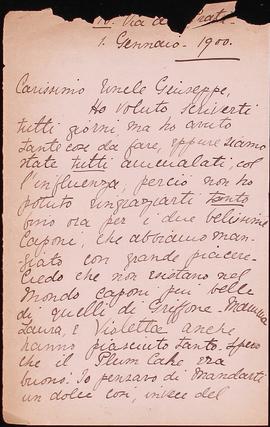 Via de' Prati
1. Gennaio - 1900.
Carissimo Uncle Giuseppe,
Ho voluto scriverti
tutti giorni, ma ho avuto
tante cose da fare, eppure siamo
state tutti ammalati, col
l'influenza, perciò non ho
potuto ringraziarti tanto
ora per i due belissimi
Caponi, che abbiamo man-
giato con grande piacere-
Credo che non esistano nel
Mondo caponi più belli
di quelli di Griffone - Mamma
Laura, e Violetta anche
hanno piasciuto tanto - Spero
che il Plum Cake era
buono. Io pensavo di Mandarti
un dolci così, invece del